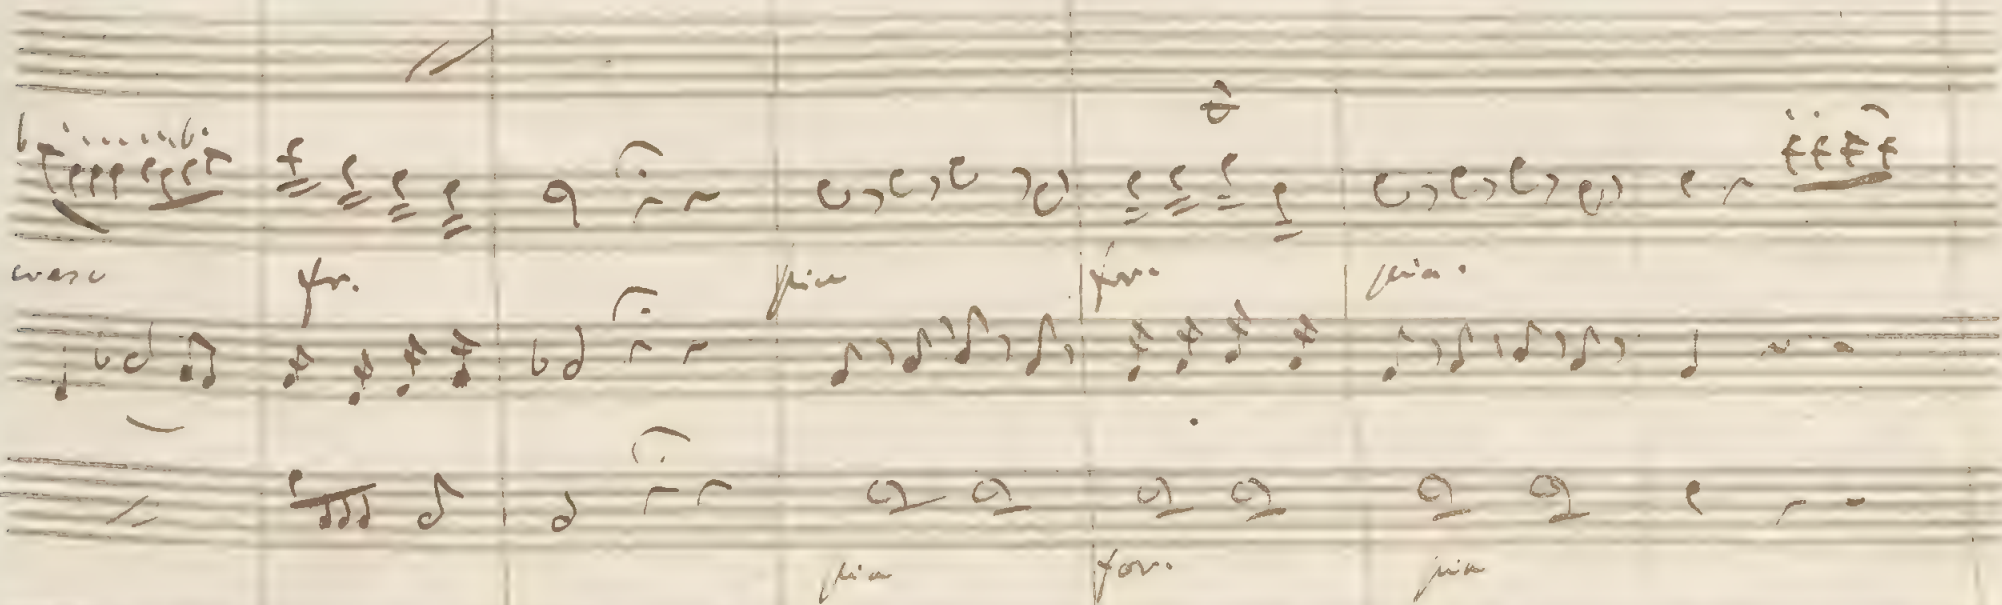 cresc
for.
pia
for.
pia.
pia
for.
pia